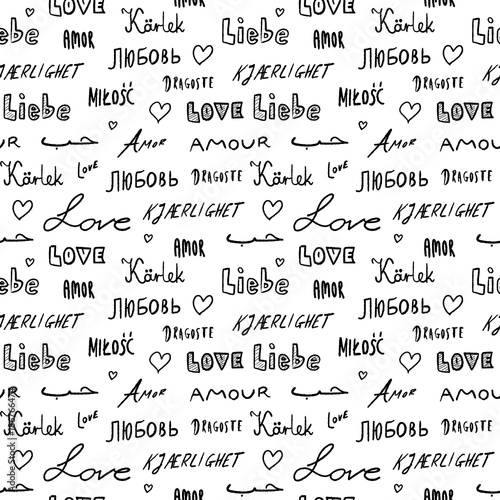 Kärlek LOVE Kärlek
Liebe AMOR Liebe AMOR
ЛЮБОВЬ ЛЮБОВЬ
KJÆRLIGHET DRAGOSTE KJÆRLIGHET DRAGOSTE
Liebe MIŁOŚĆ LOVE Liebe MIŁOŚĆ LOVE
حب AMOR AMOUR حب AMOR
Kärlek LOVE ЛЮБОВЬ DRAGOSTE Kärlek LOVE ЛЮБОВЬ DRAGOSTE
Love KJÆRLIGHET Love KJÆRLIGHET
LOVE AMOR حب LOVE AMOR حب
Liebe AMOR Kärlek Liebe AMOR Kärlek
ЛЮБОВЬ ЛЮБОВЬ
KJÆRLIGHET DRAGOSTE KJÆRLIGHET DRAGOSTE
Liebe MIŁOŚĆ LOVE Liebe MIŁOŚĆ LOVE
حب AMOR AMOUR حب AMOR
Kärlek LOVE ЛЮБОВЬ DRAGOSTE Kärlek LOVE ЛЮБОВЬ DRAGOSTE
Love KJÆRLIGHET Love KJÆRLIGHET
LOVE AMOR LOVE AMOR